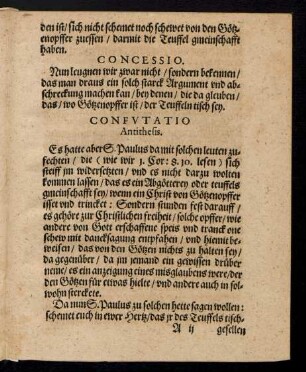 den ist/ sich nicht schemet noch schewet von den Götz-
enopffer zuessen/ darmit die Teuffel gmeinschafft
haben.
CONCESSIO.
Nun leugnen wir zwar nicht/ sondern bekennen/
das man draus ein solch starck Argument vnd ab-
schreckung machen kan/ bey denen/ die da gleuben/
das/ wo Götzenopffer ist/ der Teuffeln tisch sey.
CONFVTATIO
Antithesis.
Es hatte aber S. Paulus da mit solchen leuten zu-
fechten/ die (wie wir 1. Cor: 8. 10. lesen) sich
steiff jm widersetzten/ vnd es nicht darzu wolten
kommen lassen/ das es ein Abgötterey oder teuffels
gmeinschafft sey/ wenn ein Christ von Götzenopffer
isset vnd trincket: Sondern stunden fest darauff/
es gehöre zur Christlichen freiheit/ solche opffer/ wie
andere von Gott erschaffene speis vnd tranck one
schew mit dancksagung empfahen/ vnd hiemit be-
weisen/ das von den Götzen nichts zu halten sey/
da gegenüber/ da jm jemand ein gewissen drüber
neme/ es ein anzeigung eines misglaubens were/ der
den Götzen für etwas hielte/ vnd andere auch in sol-
wohn sterckete.
Da nun S. Paulus zu solchen hette sagen wollen:
schemet euch in ewer Hertz/ das jr des Teuffels tisch-
A ij gesellen